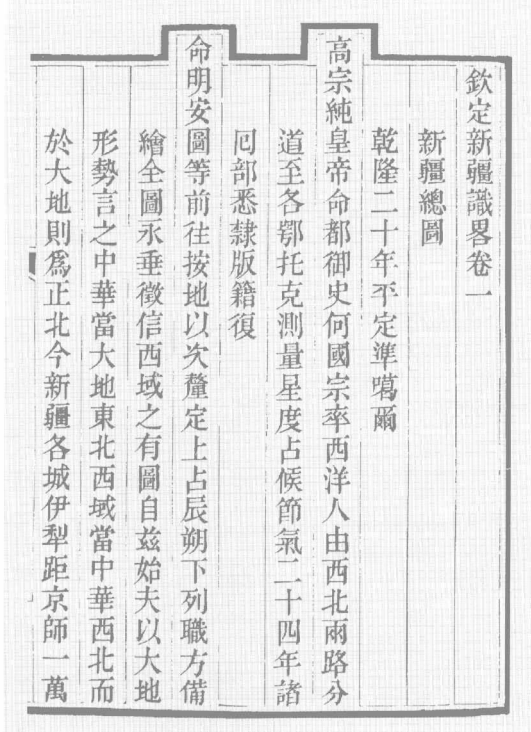 欽定新疆識畧卷一
新疆總圖
乾隆二十年平定準噶爾
高宗純皇帝命都御史何國宗率西洋人由西北兩路分
道至各鄂托克測量星度占候節氣二十四年諸
囘部悉隸版籍復
命明安圖等前往按地以次釐定上占辰朔下列職方備
繪全圖永垂徵信西域之有圖自兹始夫以大地
形勢言之中華當大地東北西域當中華西北而
於大地則爲正北今新疆各城伊犁距京師一萬